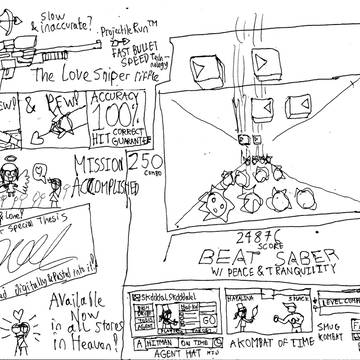 slow
& inaccurate?
ProjectileRun™
FAST BULLET
SPEED Tech-
nology
The Love Sniper riffle
PEW!
& PEW!
ACCURACY
100%
HIT CORRECT
GUARANTEE
MISSION
ACCOMPLISHED
250
COMBO
24876
SCORE
BEAT SABER
W/ PEACE & TRANQUILITY
& Love!
special Thesis
digitally & Pasted into it?
Available
Now
in all stores
in Heaven!
GO
A HITMAN ON TIME
AGENT HAT
HAYALINA
3 HACK
A KOMBAT OF TIME
LEVEL COMP
SMUG FOR
KOMBAT